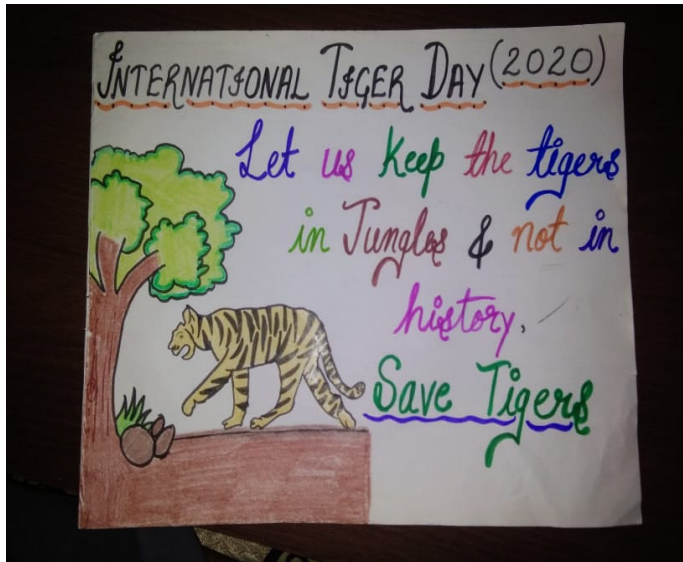 INTERNATIONAL TIGER DAY (2020)
Let us keep the tigers
in Jungles & not in
history.
Save Tigers